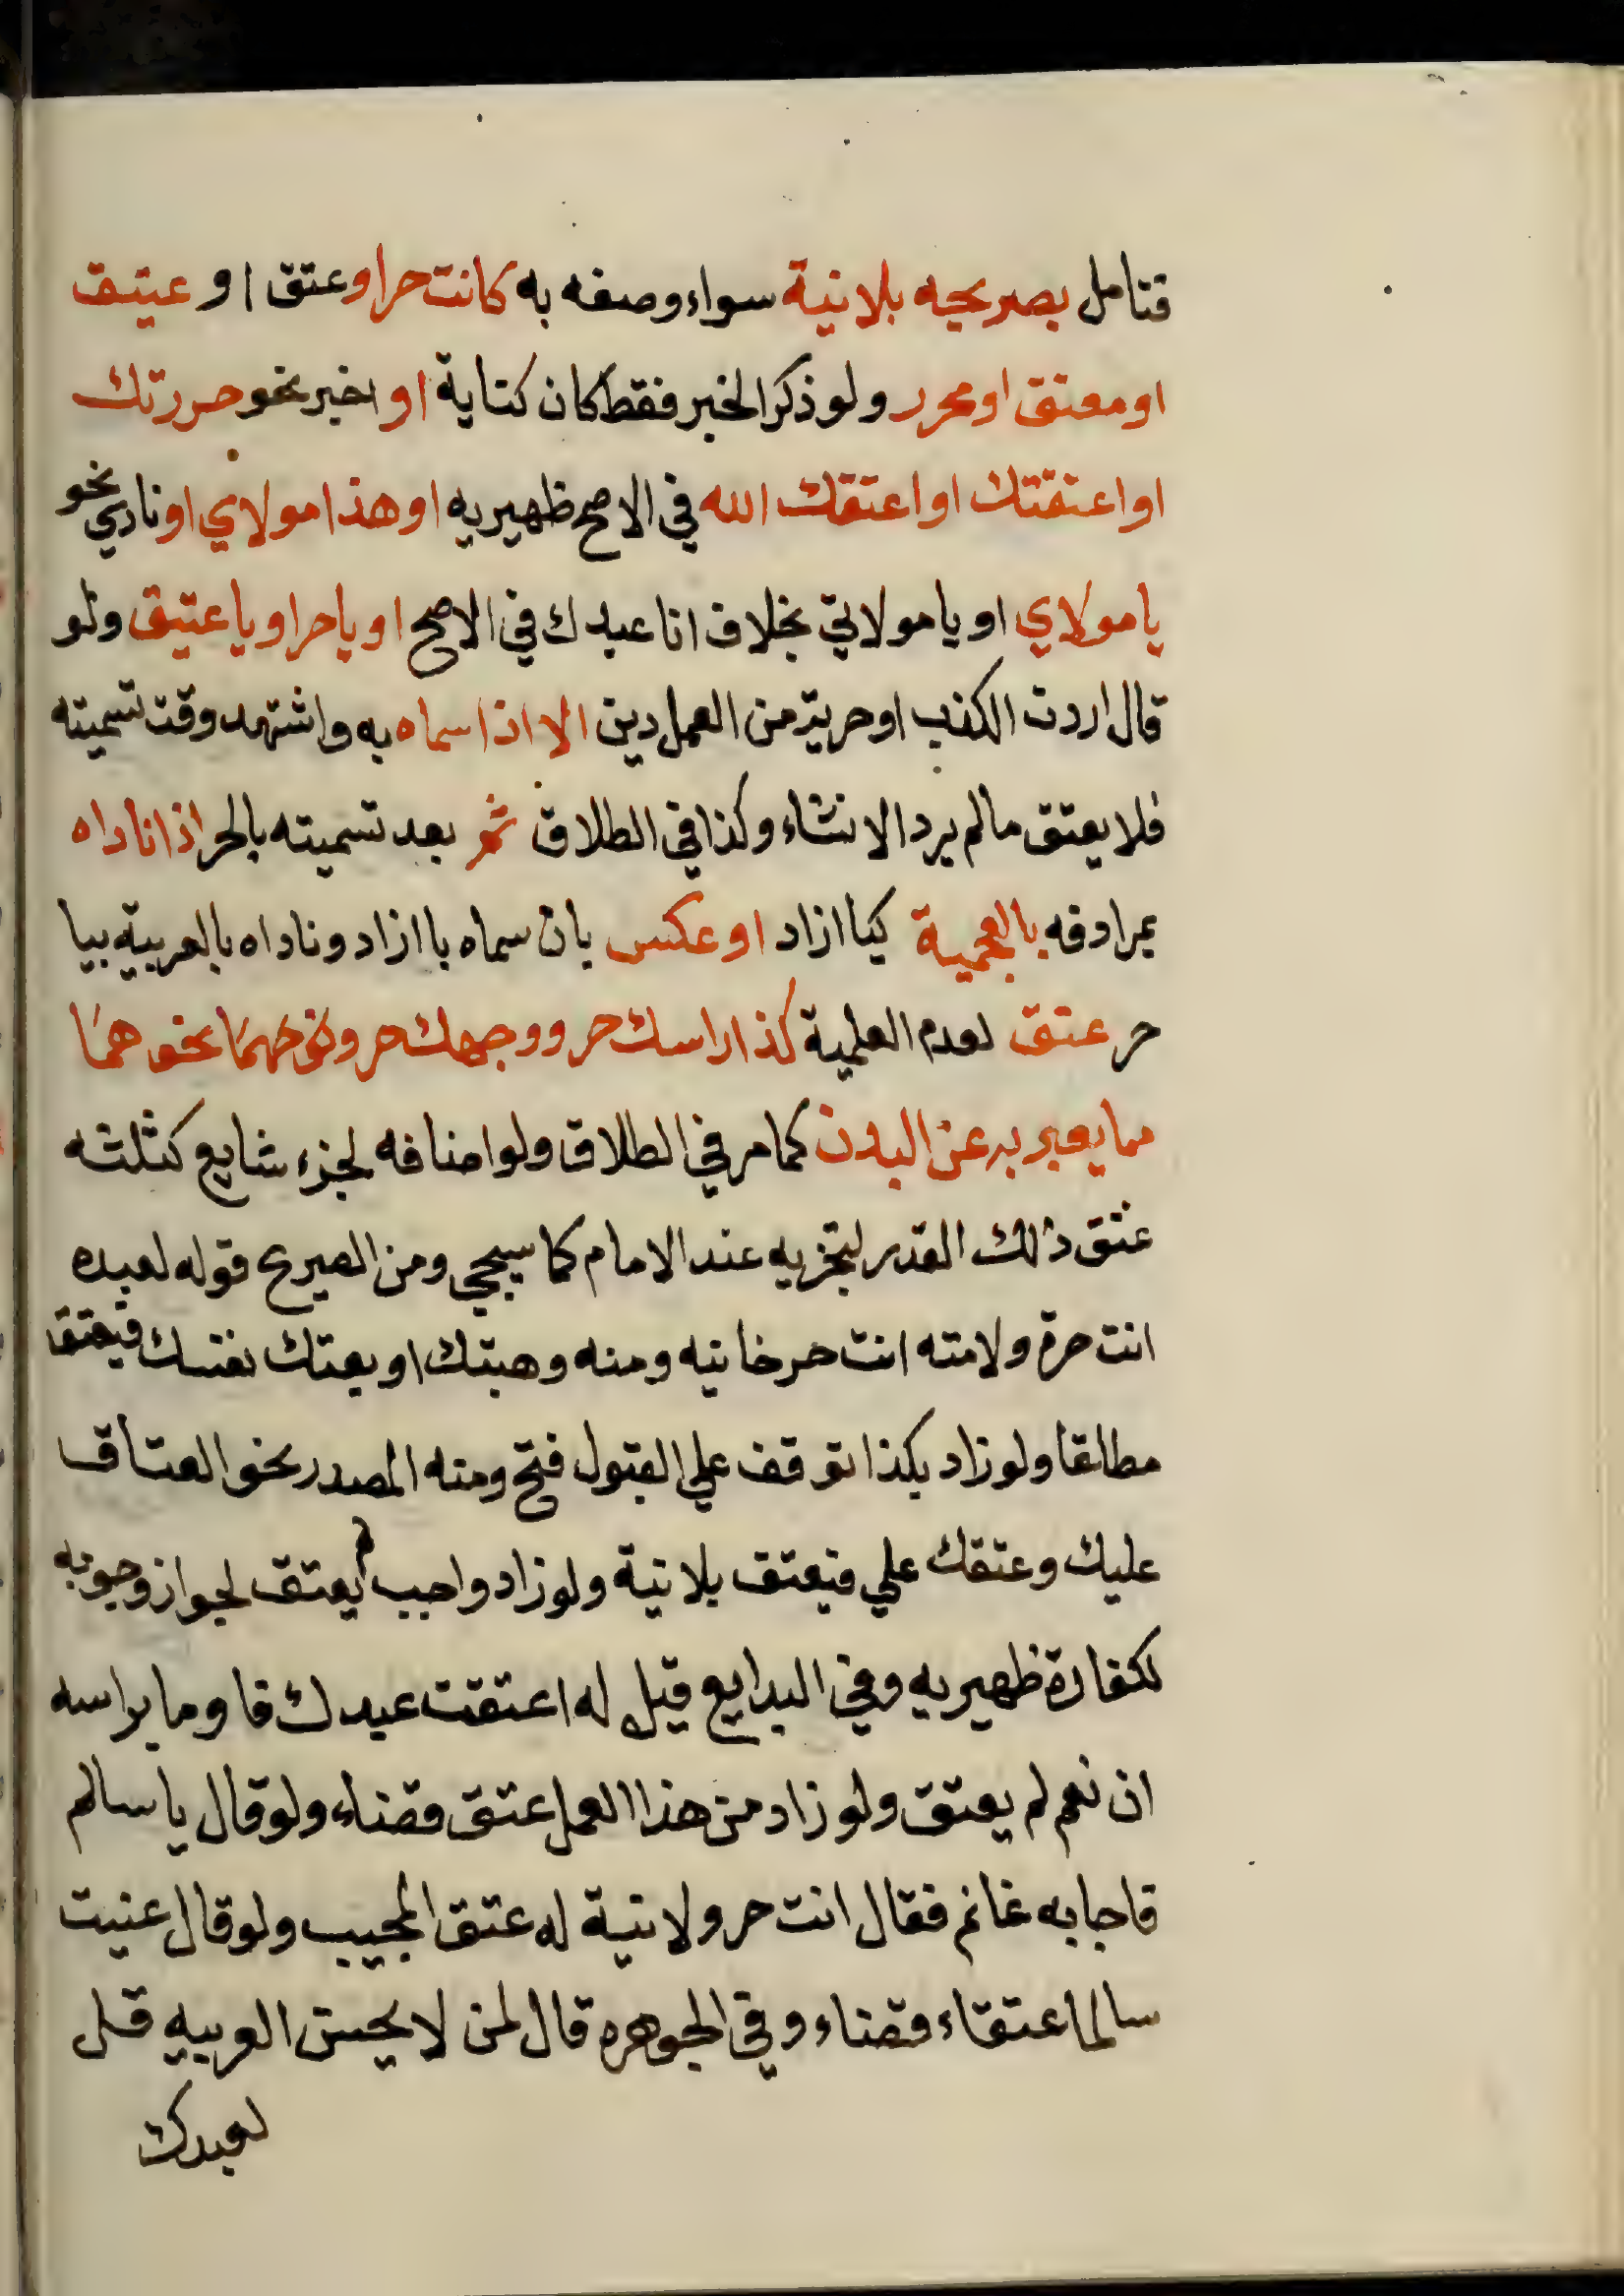 فتامل بصريحه بلا نية سواء وصفه به كانت حر او عتق او عتيق
او معتق او محرر ولو ذكر الخبر فقط كان كناية او اخبر نحو حررتك
او اعتقتك او اعتقك الله في الاصح ظهيريه او هذا مولاي او نادي نحو
يا مولاي او يا مولاتي بخلاف انا عبدك في الاصح او يا حر او يا عتيق ولو
قال اردت الكذب او حريته من العمل دين الا اذا سماه به واشتهد وقت تسميته
فلا يعتق ما لم يرد الانشاء وكذا في الطلاق ثم بعد تسميته بالحر اذا ناداه
بمرادفه بالعجمية كيا ازاد او عكس بان سماه باازاد وناداه بالعربيه بيا
حر عتق لعدم العلمية كذا راسك حر ووجهك حر ونحوهما
مما يعبر به عن البدن كما مر في الطلاق ولو اضافه لجزء شايع كثلثه
عتق ذلك القدر لتجزيه عند الامام كما سيجي ومن الصريح قوله لعبده
انت حرة ولامته انت حر خانيه ومنه وهبتك او بعتك نفسك فيعتق
مطلقا ولو زاد بكذا توقف علي القبول فتح ومنه المصدر نحو العتاق
عليك وعتقك علي فيعتق بلا نية ولو زاد واجب لم يعتق لجواز وجوبه
لكفارة ظهيريه وفي البدايع قيل له اعتقت عبدك فاوما براسه
ان نعم لم يعتق ولو زاد من هذا العمل عتق قضاء ولو قال يا سالم
فاجابه غانم فقال انت حر ولا نية له عتق المجيب ولو قال عنيت
سالما عتقاء قضاء وفي الجوهره قال لمن لا يحسن العربيه قل
لعبدك